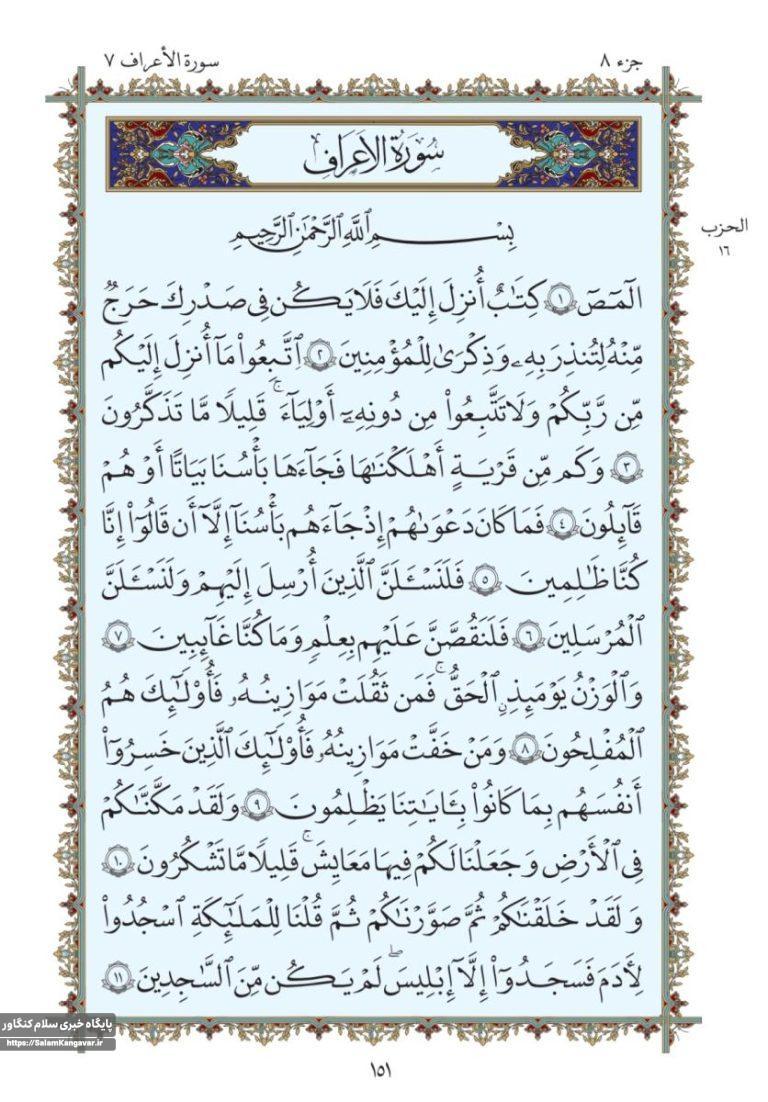 جزء ٨
سورة الأعراف ٧
سُورَةُ الأَعْرَافِ
الحزب
١٦
بِسْمِ ٱللَّهِ ٱلرَّحْمَٰنِ ٱلرَّحِيمِ
الٓمٓصٓ ١ كِتَٰبٌ أُنزِلَ إِلَيْكَ فَلَا يَكُن فِى صَدْرِكَ حَرَجٌ
مِّنْهُ لِتُنذِرَ بِهِۦ وَذِكْرَىٰ لِلْمُؤْمِنِينَ ٢ ٱتَّبِعُوا۟ مَآ أُنزِلَ إِلَيْكُم
مِّن رَّبِّكُمْ وَلَا تَتَّبِعُوا۟ مِن دُونِهِۦٓ أَوْلِيَآءَ ۗ قَلِيلًا مَّا تَذَكَّرُونَ
٣ وَكَم مِّن قَرْيَةٍ أَهْلَكْنَٰهَا فَجَآءَهَا بَأْسُنَا بَيَٰتًا أَوْ هُمْ
قَآئِلُونَ ٤ فَمَا كَانَ دَعْوَىٰهُمْ إِذْ جَآءَهُم بَأْسُنَآ إِلَّآ أَن قَالُوٓا۟ إِنَّا
كُنَّا ظَٰلِمِينَ ٥ فَلَنَسْـَٔلَنَّ ٱلَّذِينَ أُرْسِلَ إِلَيْهِمْ وَلَنَسْـَٔلَنَّ
ٱلْمُرْسَلِينَ ٦ فَلَنَقُصَّنَّ عَلَيْهِم بِعِلْمٍ وَمَا كُنَّا غَآئِبِينَ ٧
وَٱلْوَزْنُ يَوْمَئِذٍ ٱلْحَقُّ ۚ فَمَن ثَقُلَتْ مَوَٰزِينُهُۥ فَأُو۟لَٰٓئِكَ هُمُ
ٱلْمُفْلِحُونَ ٨ وَمَنْ خَفَّتْ مَوَٰزِينُهُۥ فَأُو۟لَٰٓئِكَ ٱلَّذِينَ خَسِرُوٓا۟
أَنفُسَهُم بِمَا كَانُوا۟ بِـَٔايَٰتِنَا يَظْلِمُونَ ٩ وَلَقَدْ مَكَّنَّٰكُمْ
فِى ٱلْأَرْضِ وَجَعَلْنَا لَكُمْ فِيهَا مَعَٰيِشَ ۗ قَلِيلًا مَّا تَشْكُرُونَ ١٠
وَلَقَدْ خَلَقْنَٰكُمْ ثُمَّ صَوَّرْنَٰكُمْ ثُمَّ قُلْنَا لِلْمَلَٰٓئِكَةِ ٱسْجُدُوا۟
لِـَٔادَمَ فَسَجَدُوٓا۟ إِلَّآ إِبْلِيسَ لَمْ يَكُن مِّنَ ٱلسَّٰجِدِينَ ١١
پایگاه خبری سلام کنگاور
https://SalamKangavar.ir
١٥١